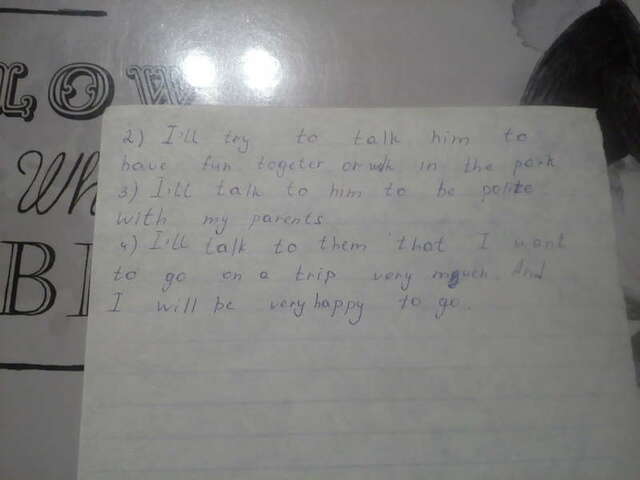 LOW
Wh
BI
2) I'll try to talk him to
have fun togeter or walk in the park
3) I'll talk to him to be polite
with my parents
4) I'll talk to them that I want
to go on a trip very much. And
I will be very happy to go.